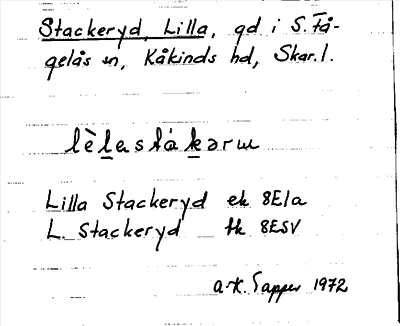 Stackeryd, Lilla, gd i S. Få-
gelås sn, Kåkinds hd, Skar. l.
lèlastákərɯ
Lilla Stackeryd ek 8E1a
L. Stackeryd tk 8ESV
a-K. Tapper 1972